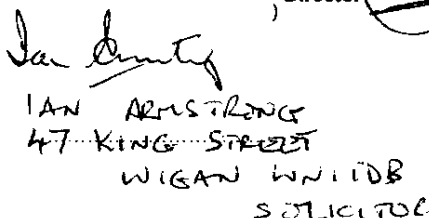 Director
IAN ARMSTRONG
47 KING STREET
WIGAN WN1 1DB
SOLICITOR